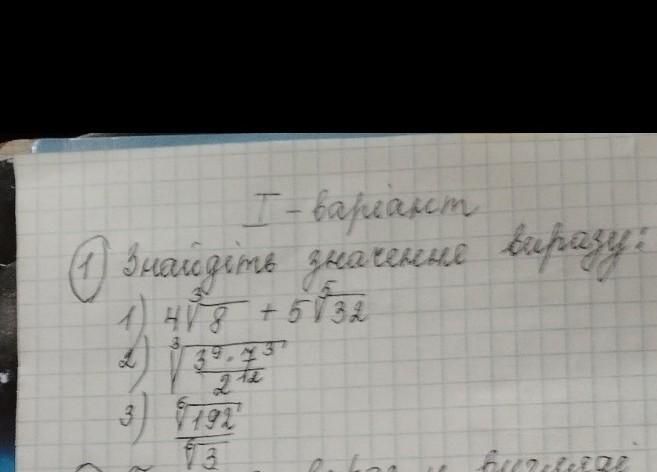 I - варіант
① Знайдіть значення виразу:
1) 4∛8 + 5⁵√32
2) ∛(3⁹·7³/2¹²)
3) ⁶√192/⁶√3